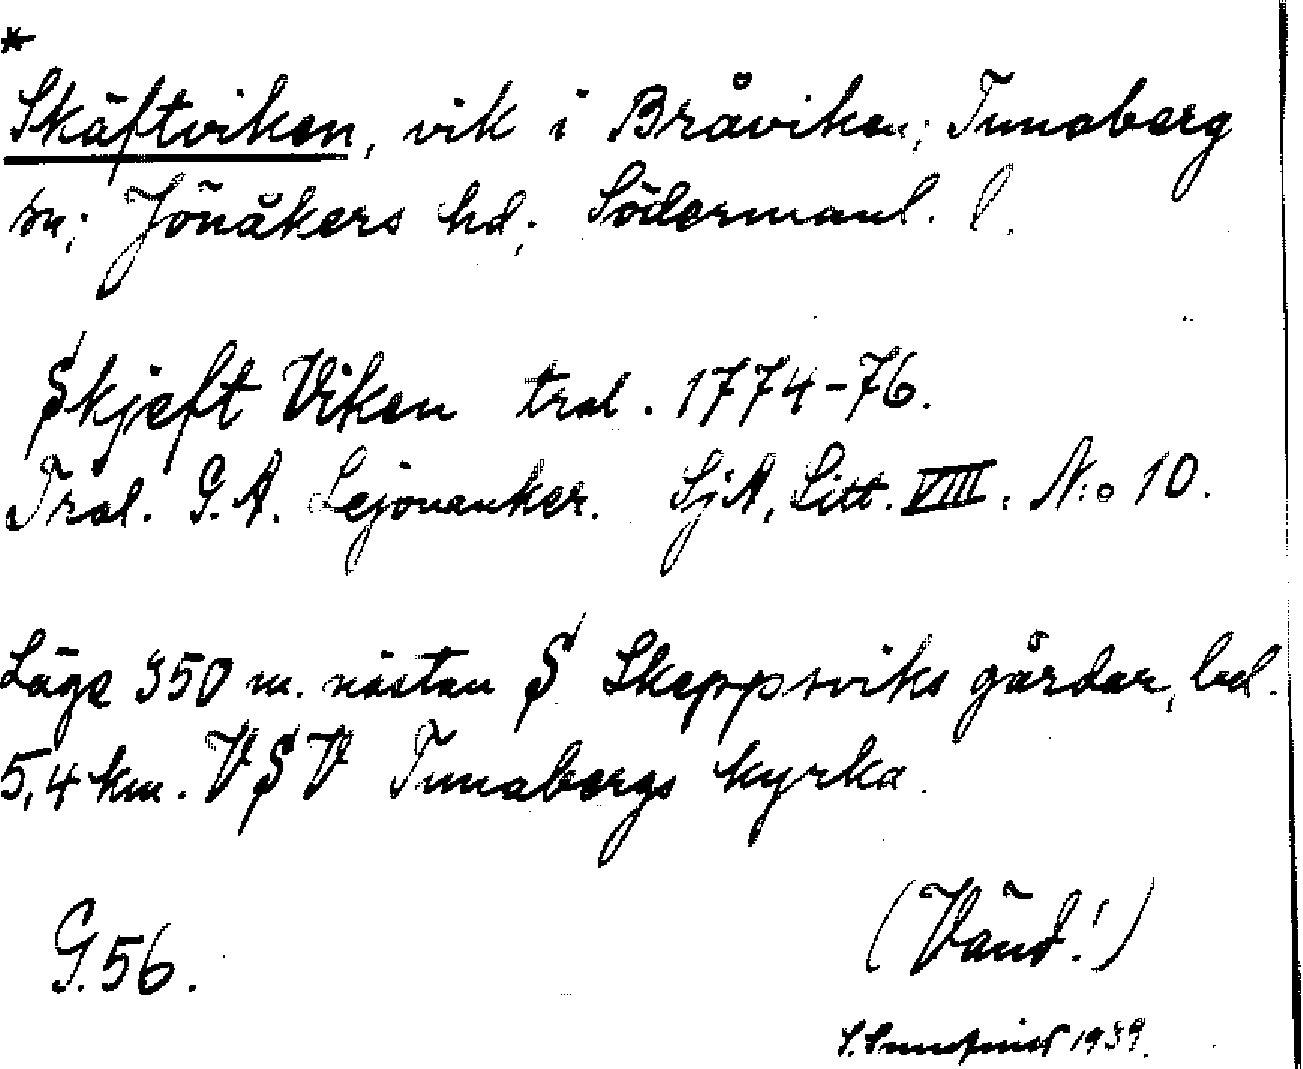 *
Skäftviken, vik i Bråviken; Tunaberg
sn; Jönåkers hd; Södermanl. l.
Skjeft Viken tral. 1774-76.
Tral. G. A. Lejonanker. SjA, Litt. VIII. N:o 10.
Läge 350 m. nästan S Skeppsviks gårdar, bel.
5,4 km. VSV Tunabergs kyrka.
G. 56.
(Vänd!)
1939.